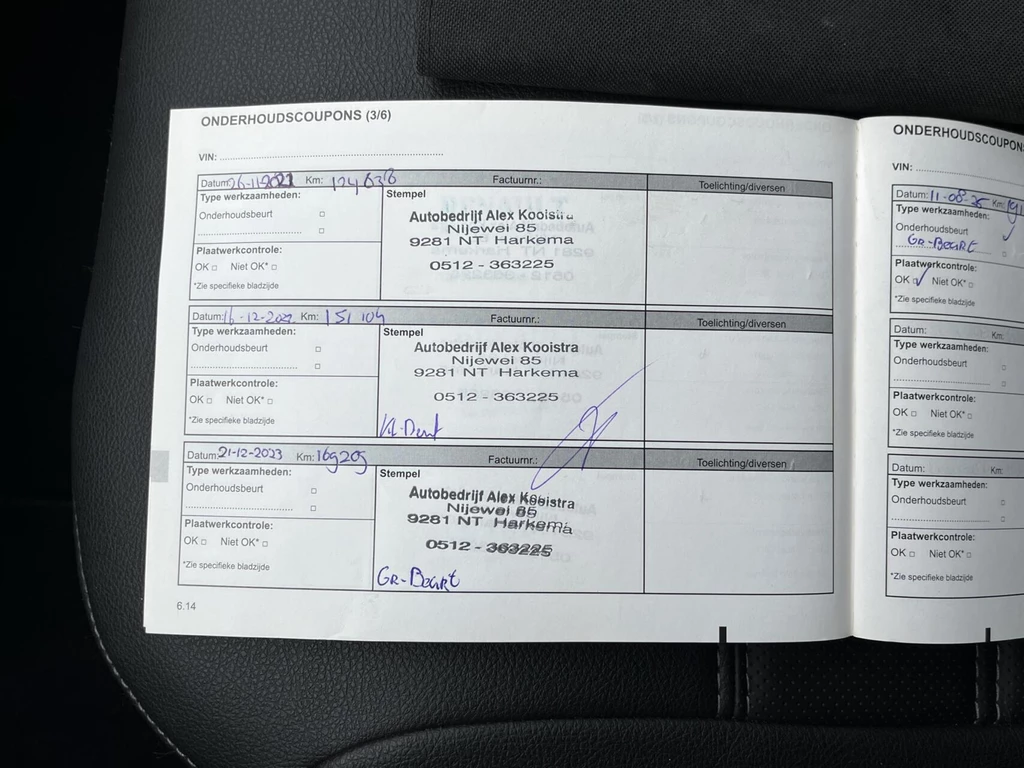 ONDERHOUDSCOUPONS (3/6)
VIN:
Datum: 26-11-2021 Km: 124638 Factuurnr.: Toelichting/diversen
Type werkzaamheden:
Onderhoudsbeurt
Plaatwerkcontrole:
OK Niet OK*
*Zie specifieke bladzijde
Stempel
Autobedrijf Alex Kooistra
Nijewei 85
9281 NT Harkema
0512 - 363225
Datum: 16-12-2022 Km: 151 104 Factuurnr.: Toelichting/diversen
Type werkzaamheden:
Onderhoudsbeurt
Plaatwerkcontrole:
OK Niet OK*
*Zie specifieke bladzijde
Stempel
Autobedrijf Alex Kooistra
Nijewei 85
9281 NT Harkema
0512 - 363225
Datum: 21-12-2023 Km: 169205 Factuurnr.: Toelichting/diversen
Type werkzaamheden:
Onderhoudsbeurt
Plaatwerkcontrole:
OK Niet OK*
*Zie specifieke bladzijde
Stempel
Autobedrijf Alex Kooistra
Nijewei 85
9281 NT Harkema
0512 - 363225
GR-Beurt
6.14
ONDERHOUDSCOUPONS
VIN:
Datum: 11-08-25 Km: 191
Type werkzaamheden:
Onderhoudsbeurt
GR-Beurt
Plaatwerkcontrole:
OK Niet OK*
*Zie specifieke bladzijde
Datum: Km:
Type werkzaamheden:
Onderhoudsbeurt
Plaatwerkcontrole:
OK Niet OK*
*Zie specifieke bladzijde
Datum: Km:
Type werkzaamheden:
Onderhoudsbeurt
Plaatwerkcontrole:
OK Niet OK*
*Zie specifieke bladzijde